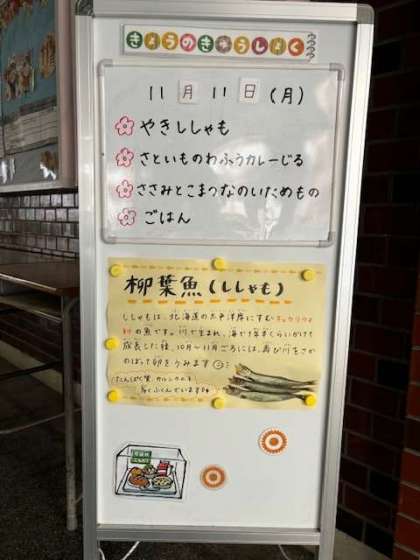 きょうのきゅうしょく
11月11日(月)
やきししゃも
さといものわふうカレーじる
ささみとこまつなのいためもの
ごはん
柳葉魚(ししゃも)
ししゃもは、北海道の太平洋岸にすむキュウリウオ
科の魚です。川で生まれ、海で1年半くらいかけて
成長した後、10月~11月ごろには、再び川をさか
のぼって卵をうみます
たんぱく質、カルシウムを
多くふくんでいます